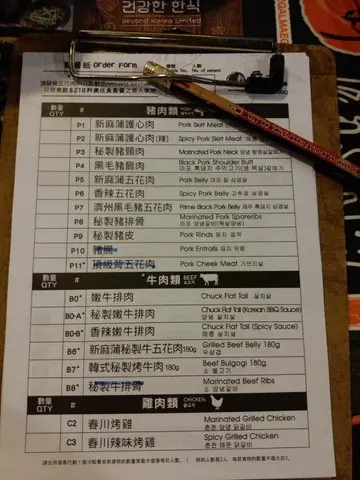 건강한 한식
Beyond Korea Limited
Order Form
人數
No. of person
數量 QTY # 豬肉類 PORK
P1 新麻蒲護心肉 Pork Skirt Meat
P2 新麻蒲護心肉(辣) Spicy Pork Skirt Meat
P3 秘製豬頸肉 Marinated Pork Neck
P4 黑毛豬肩肉 Black Pork Shoulder Butt
P5 新麻蒲五花肉 Pork Belly 마포 힘 삼겹살
P6 香辣五花肉 Spicy Pork Belly 고추장 삼겹살
P7 濟州黑毛豬五花肉 Prime Black Pork Belly 제주 흑돼지 삼겹살
P8 秘製豬排骨 Marinated Pork Spareribs
마포 돼지갈비
P9 秘製豬皮 Pork Rinds 돼지 껍데기
P10 豬腸 Pork Entralls 돼지 막창
P11* 頂級背五花肉 Pork Cheek Meat 가브리살
數量 QTY # *牛肉類 BEEF 소고기
B0* 嫩牛排肉 Chuck Flat Tail 살치살
B0-A* 秘製嫩牛排肉 Chuck Flat Tail (Korean BBQ Sauce)
양념 살치살
B0-B* 香辣嫩牛排肉 Chuck Flat Tail (Spicy Sauce)
매콤 살치살
B6* 新麻蒲秘製牛五花肉180g Grilled Beef Belly 180g
우삼겹
B7* 韓式秘製烤牛肉180g Beef Bulgogi 180g
소 불고기
B8* 秘製牛排骨 Marinated Beef Ribs
소 양념갈비
數量 QTY # 雞肉類 CHICKEN 닭고기
C2 春川烤雞 Marinated Grilled Chicken
춘천 양념 닭갈비
C3 春川辣味烤雞 Spicy Grilled Chicken
춘천 매운 닭갈비